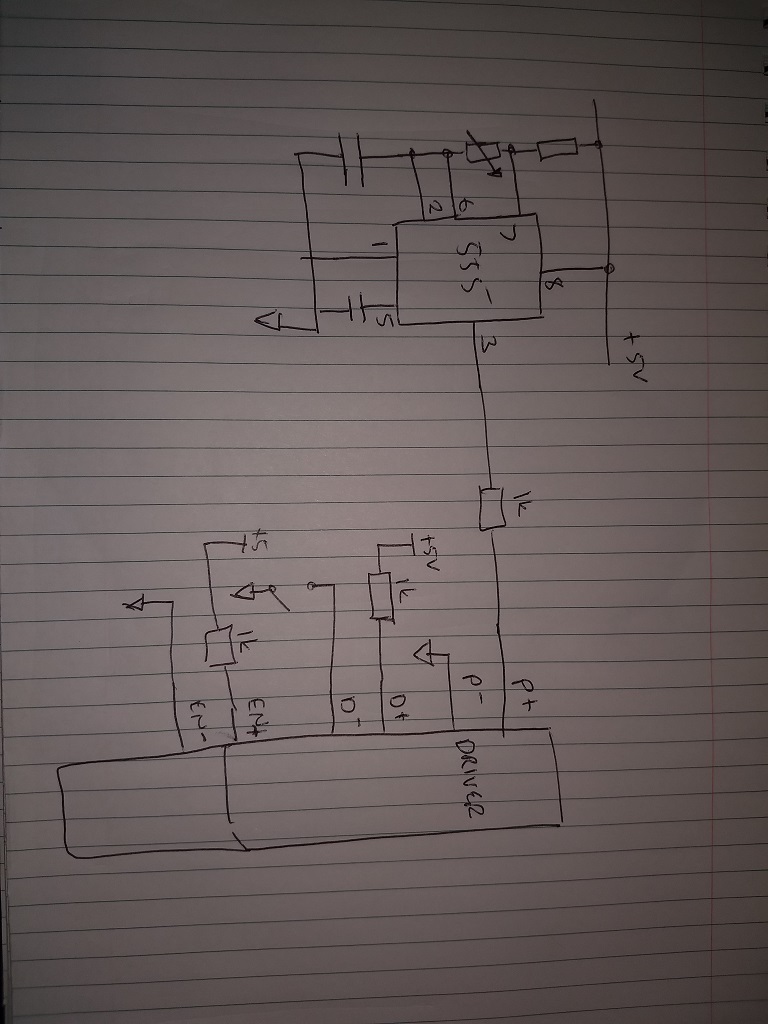 +5V
8
7
555
6
2
1
5
3
1k
+5V
1k
+5
1k
P+
P-
D+
D-
EN+
EN-
DRIVER